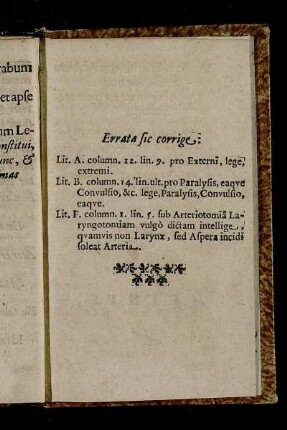 rabum
et apse
um Le-
onstitui,
unc, &
mas
Errata sic corrige:
Lit. A. column. 12. lin. 9. pro Externi, lege,
extremi.
Lit. B. column. 14. lin. ult. pro Paralysis, eaqve
Convulsio, &c. lege, Paralysis, Convulsio,
eaqve.
Lit. F. column. 1. lin. 5. sub Arteriotomiâ La-
ryngotomiam vulgò dictam intellige,
qvamvis non Larynx, sed Aspera incidi
soleat Arteria.